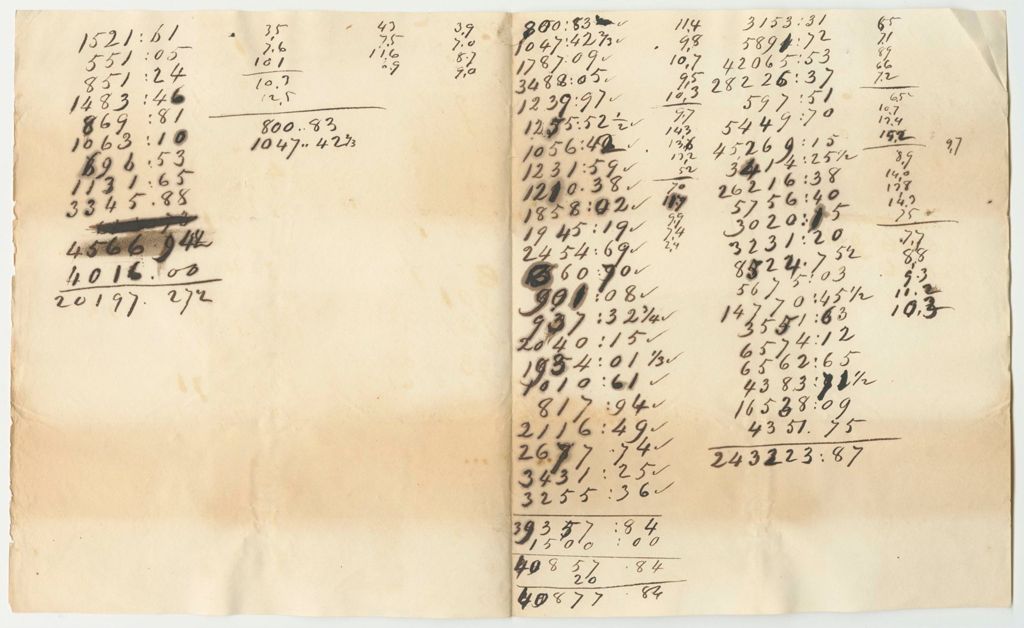 1521:61
551:05
851:24
1483:46
869:81
1063:10
696:53
1131:65
3345.88
4566.94½
4016.00
20197.27½
35
7.6
10.1
10.3
12.5
43
7.5
11.6
.9
3.9
7.0
8.7
9.0
800..83
1047..42⅔
800:83
1047:42⅔
1787:09
3488:05
1239:97
1255:52½
1056:42
1231:59
1210.38
1858:02
1945:19
2454:69
860:70
901:08
937:32¾
2040:15
1954:01⅓
1010:61
817:94
2116:49
2687.74
3431:25
3255:36
39357:84
1500:00
40857.84
20
40877.84
11.4
9.8
10.7
9.5
10.3
9.7
14.3
13.2
5.2
70
11.7
9.9
7.4
3153:31
5891:72
42065:53
28226:37
597:51
5449:70
45269:15
3414:25½
26216:38
5756:40
3020:15
3231:20
8524.75½
5675:03
14770:45½
3551:63
6574:12
6562:65
4383:91½
16528:09
4351.75
243223:87
65
71
89
66
7.2
65
10.7
12.4
15.2
8.9
14.0
17.8
14.3
7.5
7.7
8.8
9.3
11.2
10.3
9.7